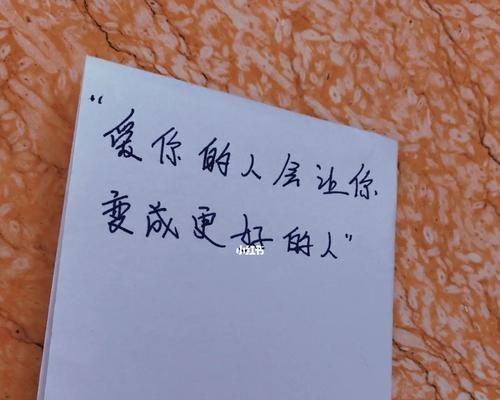 “爱你的人会让你
变成更好的人”
小红书